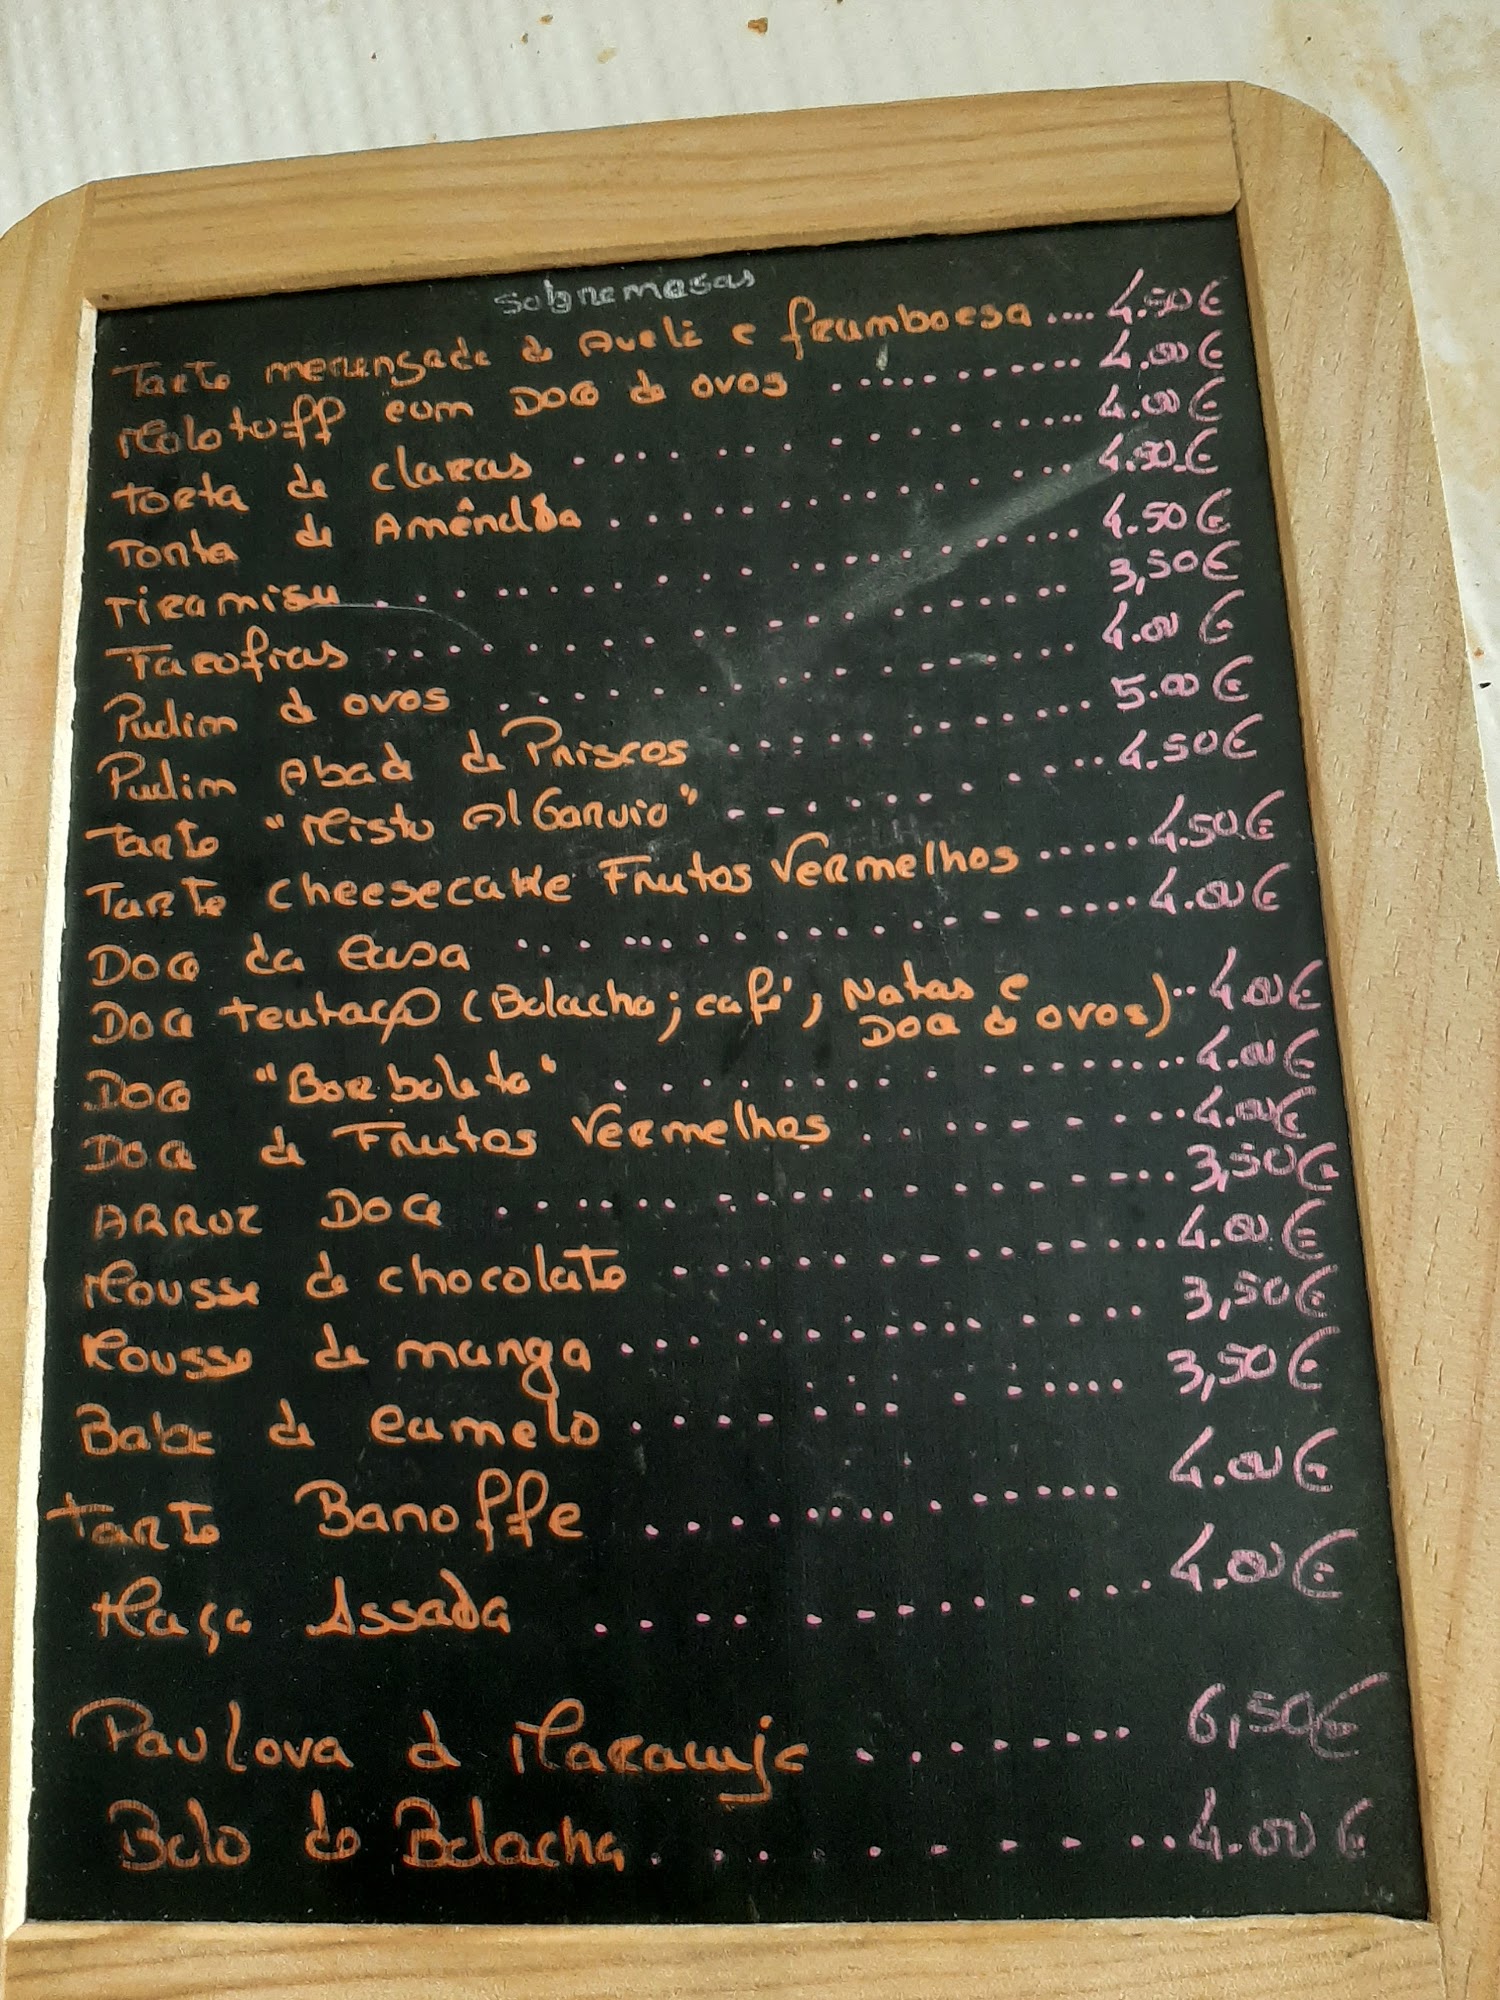 Sobremesas
Tarte merengada de Avelã e framboesa .... 4.50€
Molotoff com Doce de ovos ............ 4.00€
Torta de claras ............ 4.00€
Torta de Amêndôa ............ 4.50€
Tiramisu ............ 4.50€
Farófias ............ 3,50€
Pudim de ovos ............ 4.00€
Pudim Abade de Priscos ............ 5.00€
Tarte "Misto AlGarvio" ............ 4.50€
Tarte Cheesecake Frutos Vermelhos ..... 4.50€
Doce da Casa ............ 4.00€
Doce (Bolacha; café; Natas e .. 4.00€
Doce de ovos)
Doce "Borboleta" ............ 4.00€
Doce de Frutos Vermelhos ........ 4.00€
ARROZ Doce ............ 3,50€
Mousse de chocolate ............ 4.00€
Mousse de manga ............ 3,50€
Baba de Camelo ............ 3,50€
Tarte Banoffe ............ 4.00€
Maça Assada ............ 4.00€
Pavlova de Maracuja ........ 6,50€
Bolo de Bolacha ........ 4.00€